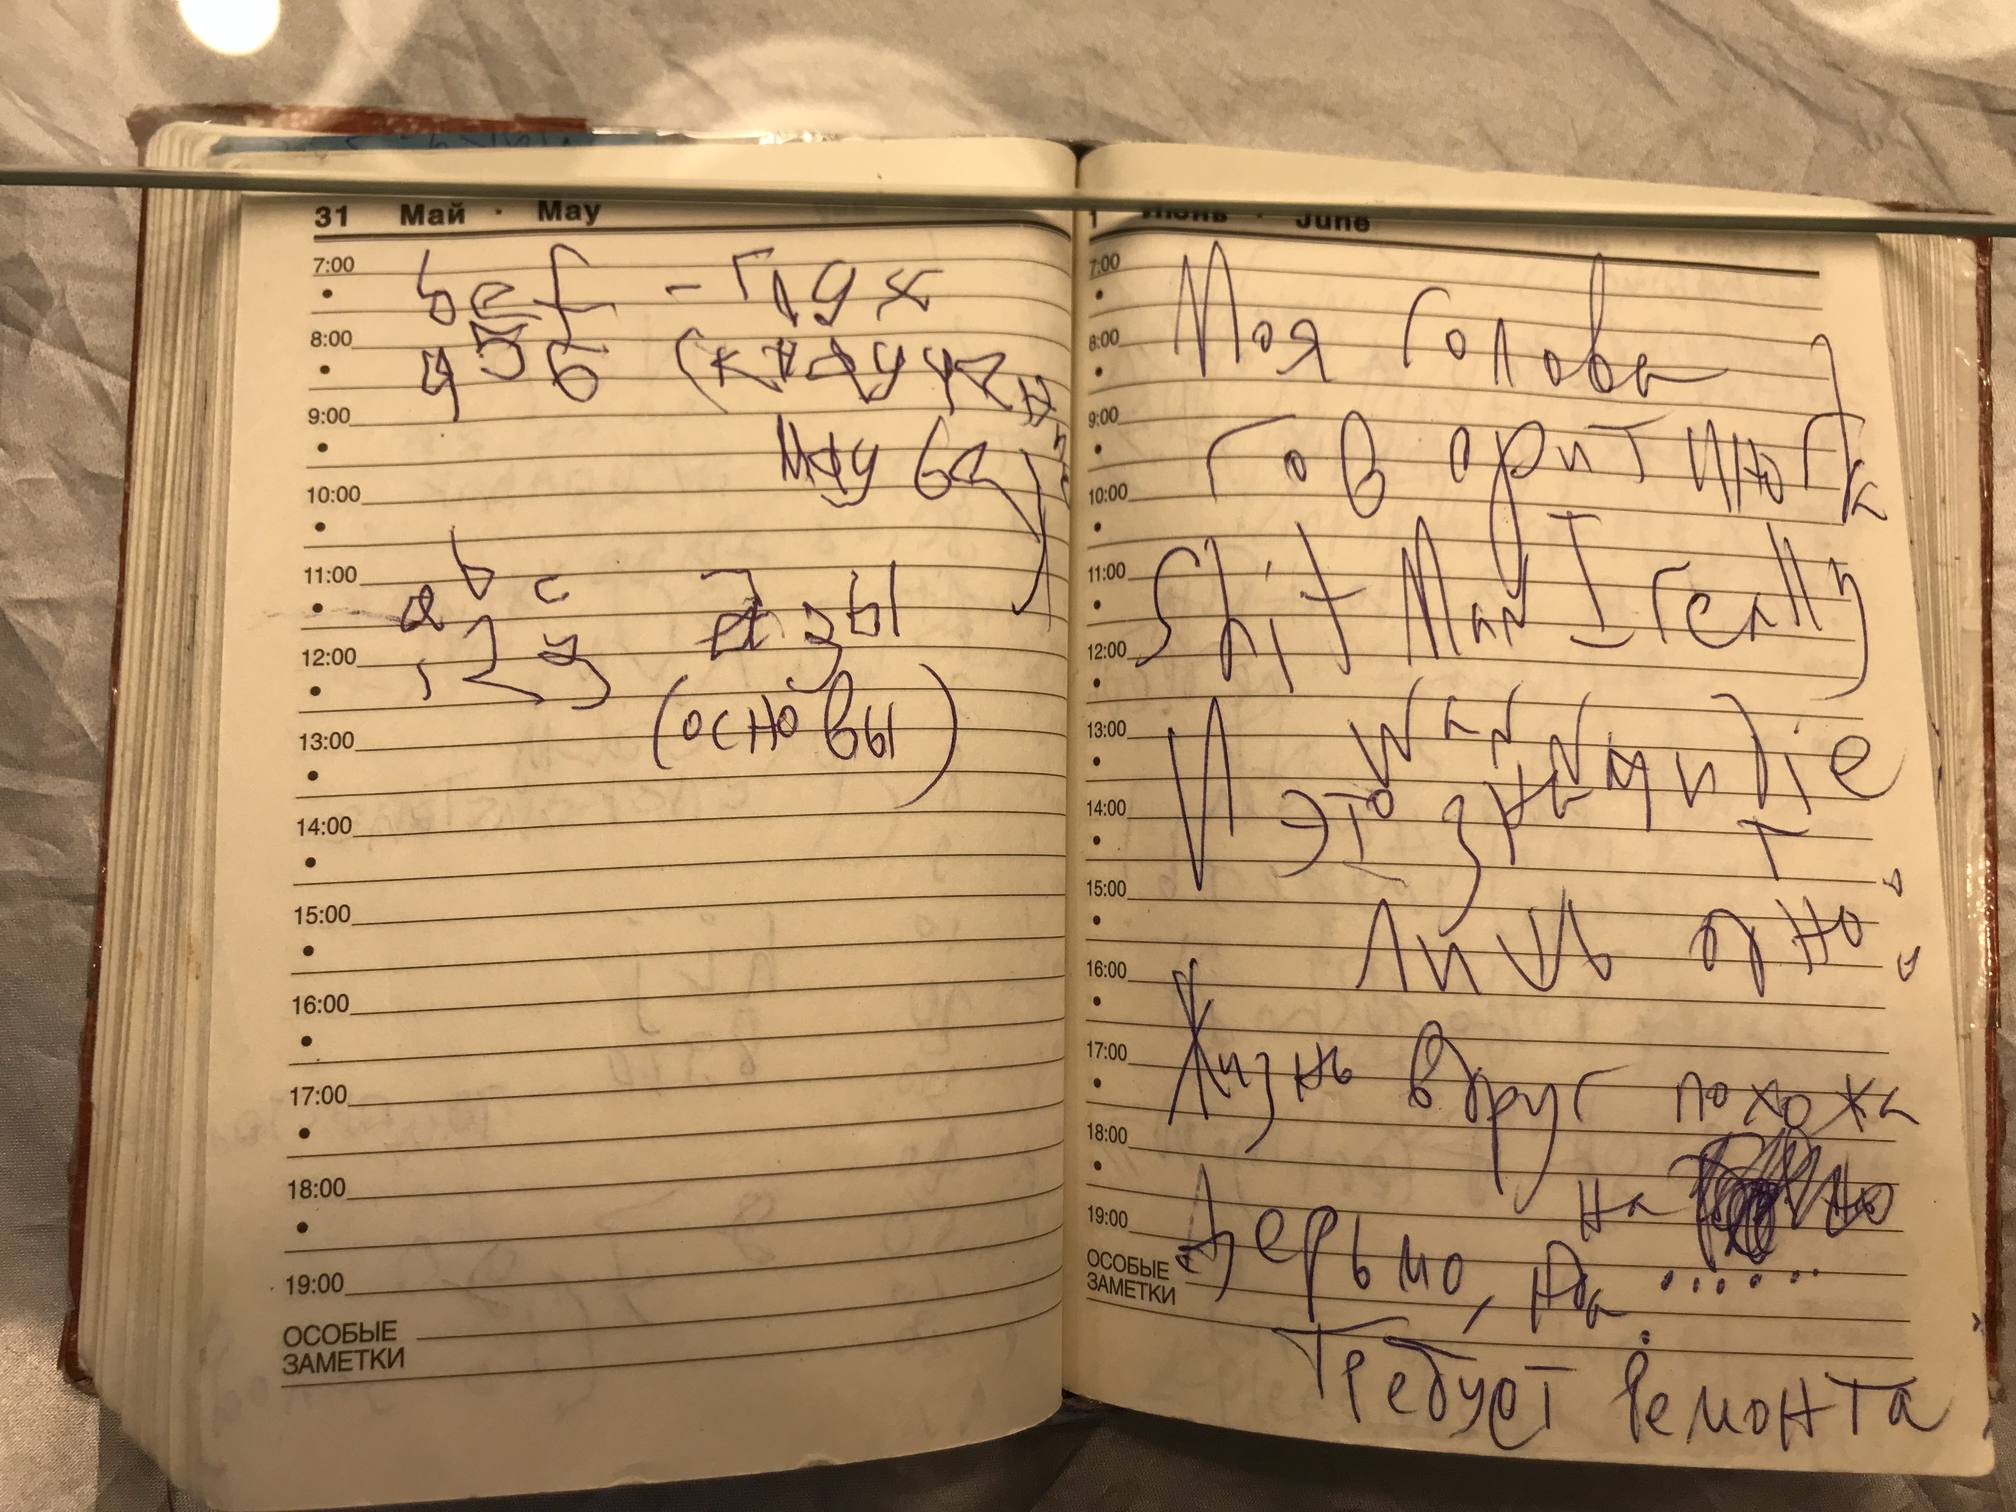 31 Май · May
7:00
8:00
9:00
10:00
11:00
12:00
13:00
14:00
15:00
16:00
17:00
18:00
19:00
ОСОБЫЕ
ЗАМЕТКИ
bef -
456
a b c Азы
123
(основы)
1 Июнь · June
7:00
8:00
9:00
10:00
11:00
12:00
13:00
14:00
15:00
16:00
17:00
18:00
19:00
ОСОБЫЕ
ЗАМЕТКИ
Моя голова
говорит иногда
Shit Man I really
wanna die
И это значит
лишь одно:
Жизнь вдруг похожа
на
Дерьмо, но
Требует Ремонта